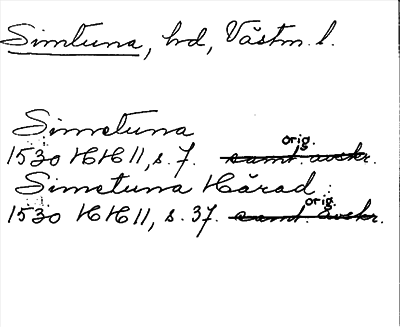 Simtuna, hd, Västm. l.
Simetuna
orig.
1530 HH 11, s. 7. samt avskr.
Simetuna Härad :
orig.
1530 HH 11, s. 37. samt. avskr.